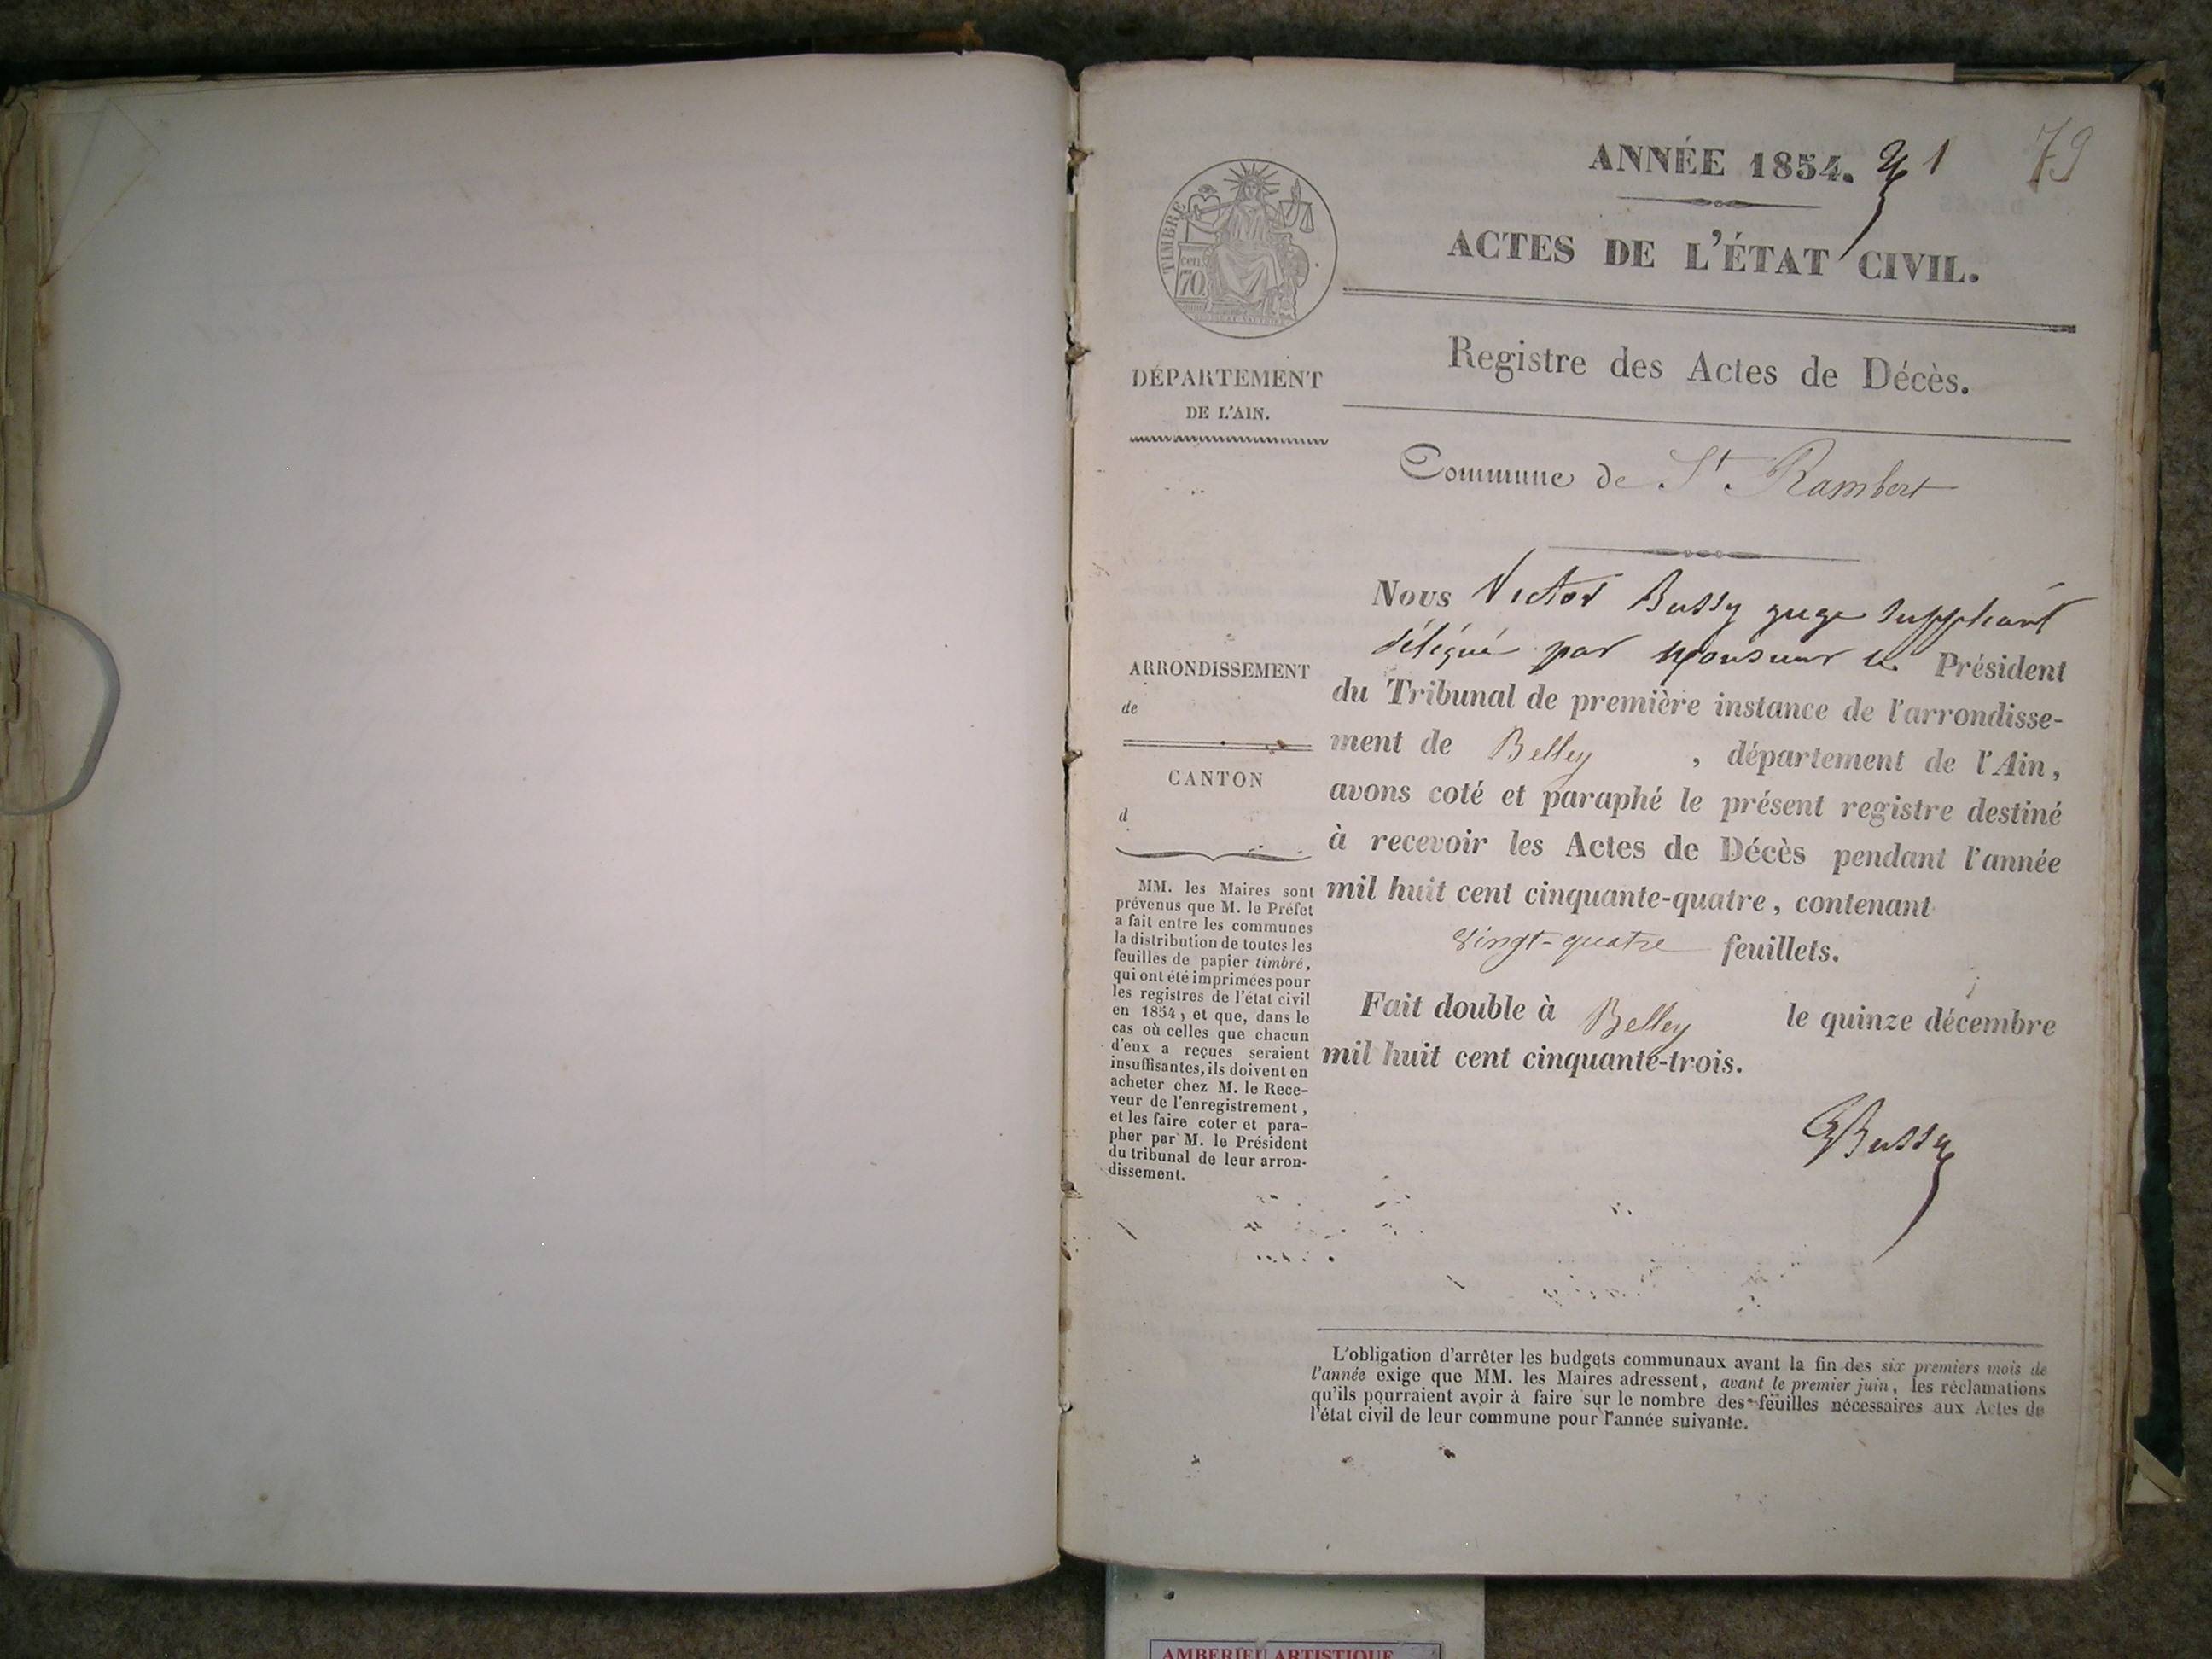 ANNÉE 1854. 1 79
ACTES DE L'ÉTAT CIVIL.
TIMBRE
cen.
70
Registre des Actes de Décès.
DÉPARTEMENT
DE L'AIN.
Commune de St. Rambert
Nous Victor Bussy juge suppléant
délégué par Monsieur le Président
du Tribunal de première instance de l'arrondisse-
ment de Belley , département de l'Ain,
avons coté et paraphé le présent registre destiné
à recevoir les Actes de Décès pendant l'année
mil huit cent cinquante-quatre, contenant
vingt-quatre feuillets.
Fait double à Belley le quinze décembre
mil huit cent cinquante-trois.
Bussy
ARRONDISSEMENT
de
CANTON
d
MM. les Maires sont
prévenus que M. le Préfet
a fait entre les communes
la distribution de toutes les
feuilles de papier timbré,
qui ont été imprimées pour
les registres de l'état civil
en 1854, et que, dans le
cas où celles que chacun
d'eux a reçues seraient
insuffisantes, ils doivent en
acheter chez M. le Rece-
veur de l'enregistrement,
et les faire coter et para-
pher par M. le Président
du tribunal de leur arron-
dissement.
L'obligation d'arrêter les budgets communaux avant la fin des six premiers mois de
l'année exige que MM. les Maires adressent, avant le premier juin, les réclamations
qu'ils pourraient avoir à faire sur le nombre des feuilles nécessaires aux Actes de
l'état civil de leur commune pour l'année suivante.
AMBERIEU ARTISTIQUE